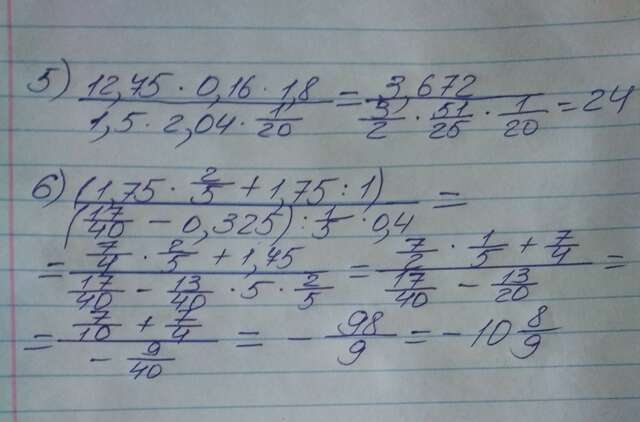 5) 12,75 · 0,16 · 1,8 / 1,5 · 2,04 · 1/20 = 3,672 / 3/2 · 51/25 · 1/20 = 24
6) (1,75 · 2/5 + 1,75 : 1) / (17/40 − 0,325) : 1/5 · 0,4 =
= 7/4 · 2/5 + 1,75 / 17/40 − 13/40 · 5 · 2/5 = 7/2 · 1/5 + 7/4 / 17/40 − 13/20 =
= 7/10 + 7/4 / − 9/40 = − 98/9 = − 10 8/9